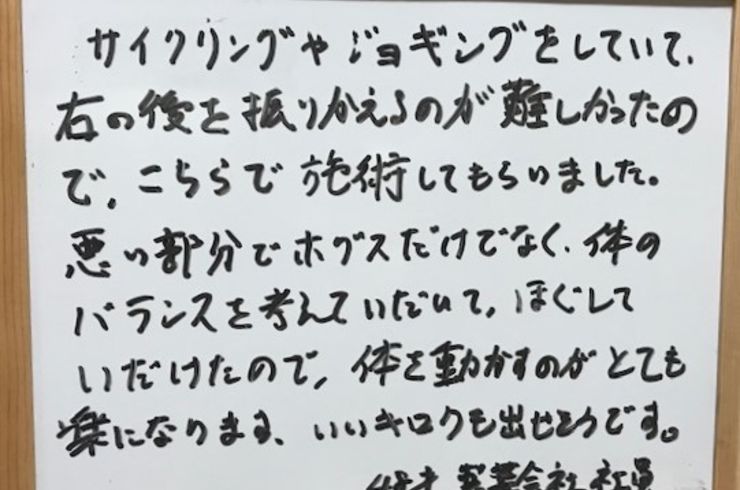 サイクリングや ジョギングをしていて、
右の後を振りかえるのが難しかったの
で、こちらで施術してもらいました。
悪い部分でホグスだけでなく、体の
バランスを考えていただいて、ほぐして
いだけたので、体を動かすのがとても
楽になります、いいキロクも出せそうです。
48才 製薬会社 社員